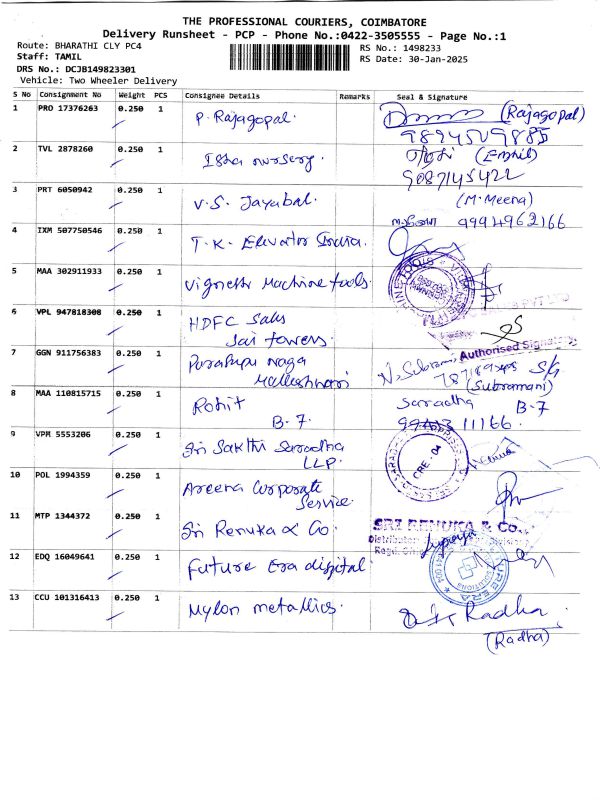 THE PROFESSIONAL COURIERS, COIMBATORE
Delivery Runsheet - PCP - Phone No.:0422-3505555 - Page No.:1
Route: BHARATHI CLY PC4
RS No.: 1498233
Staff: TAMIL
RS Date: 30-Jan-2025
DRS No.: DCJB149823301
Vehicle: Two Wheeler Delivery
S No Consignment No Weight PCS Consignee Details Remarks Seal & Signature
1 PRO 17376263 0.250 1 P. Rajagopal. (Rajagopal)
2 TVL 2878260 0.250 1 Isha nursery.
9087145422
3 PRT 6050942 0.250 1 V.S. Jayabal. (M.Meena)
9994962166
4 IXM 507750546 0.250 1 T.K. Elevator India.
5 MAA 302911933 0.250 1 Vignesh Machine tools
6 VPL 947818308 0.250 1 HDFC Sales
Sai towers
Authorised Signatory
7 GGN 911756383 0.250 1 naga
(Subramani)
8 MAA 110815715 0.250 1 Rohit Saradha
B-7. B-7
11166.
9 VPM 5553206 0.250 1 Sri Sakthi Saradha
LLP. CBE - 04
10 POL 1994359 0.250 1 Areena Corporate
Service.
11 MTP 1344372 0.250 1 Sri Renuka & Co. SRI RENUKA & Co.,
12 EDQ 16049641 0.250 1 Future Era digital
13 CCU 101316413 0.250 1 Mylon metallics. Radha
(Radha)